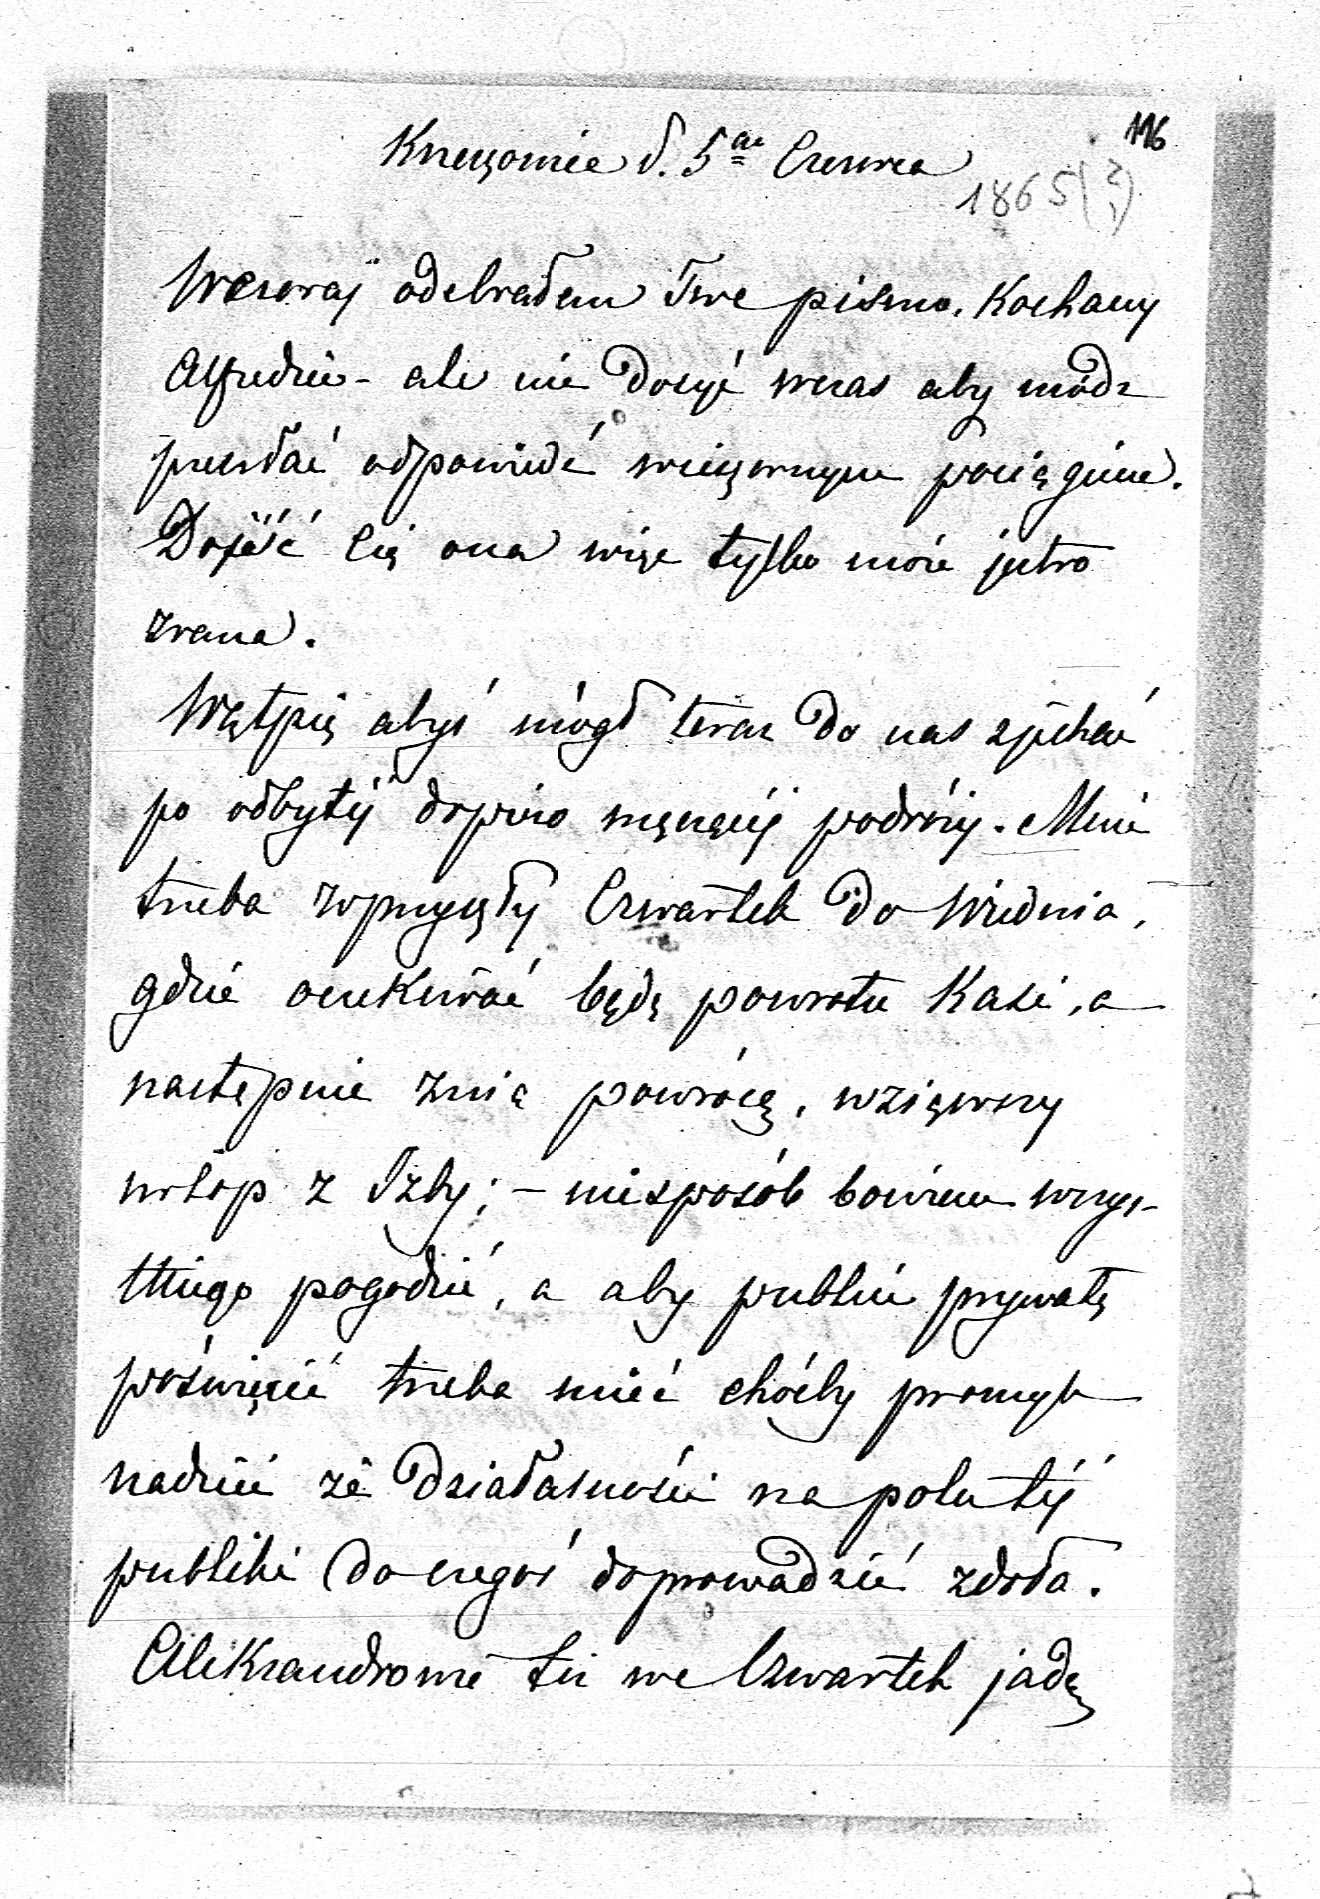 116
Krzeszowice d. 5go Czerwca
1865(?)
Wczoraj odebrałem Twe pismo, Kochany
Alfredzie - ale nie dosyć wczas aby módz
przesłać odpowiedź wieczornym pociągiem.
Dojść Cię ona więc tylko może jutro
zrana.
Wątpię abyś mógł teraz do nas zjechać
po odbytéj dopiero męczącéj podróży. Mnie
trzeba w przyszły Czwartek do Wiednia,
gdzie oczekiwać będę powrotu Kasi, a
następnie z nią powrócę, wziąwszy
urlop z Izby; - niesposób bowiem wszys-
tkiego pogodzić, a aby publice prywatę
poświęcić trzeba mieć choćby promyk
nadziei że działalność na polu téj
publiki do czegoś doprowadzić zdoła.
Aleksandrowie też we Czwartek jadą